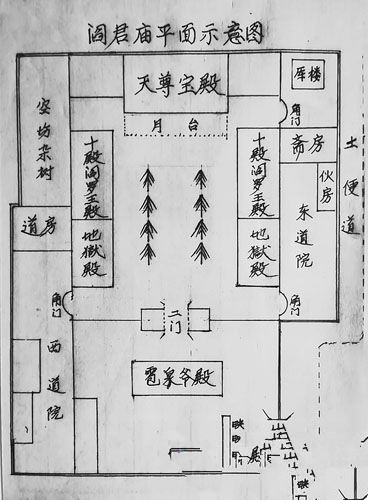 阎君庙平面示意图
天尊宝殿
月台
库楼
角门
斋房
伙房
土便道
东道院
空坊杂树
十殿阎罗王殿
十殿阎罗王殿
地獄殿
地獄殿
道房
角门
二门
角门
西道院